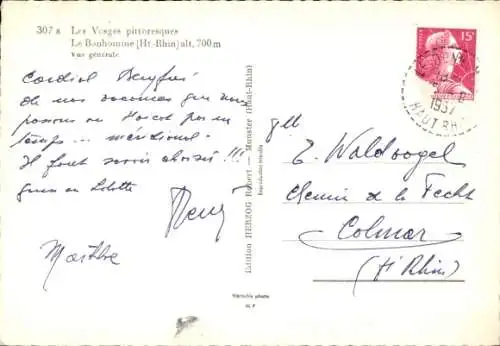 307 a Les Vosges pittoresques
Le Bonhomme (Ht.-Rhin) alt. 700m
Vue générale
Cordial
de nos vacances que nous
passons au par un
temps ... méridional
Il faut savoir choisir !!!
Marthe
Edition HERZOG Robert — Munster (Haut-Rhin)
Reproduction interdite
Véritable photo
15F
1957
HAUT RHIN
E. Waldvogel
Chemin de la Fecht
Colmar
(Ht Rhin)